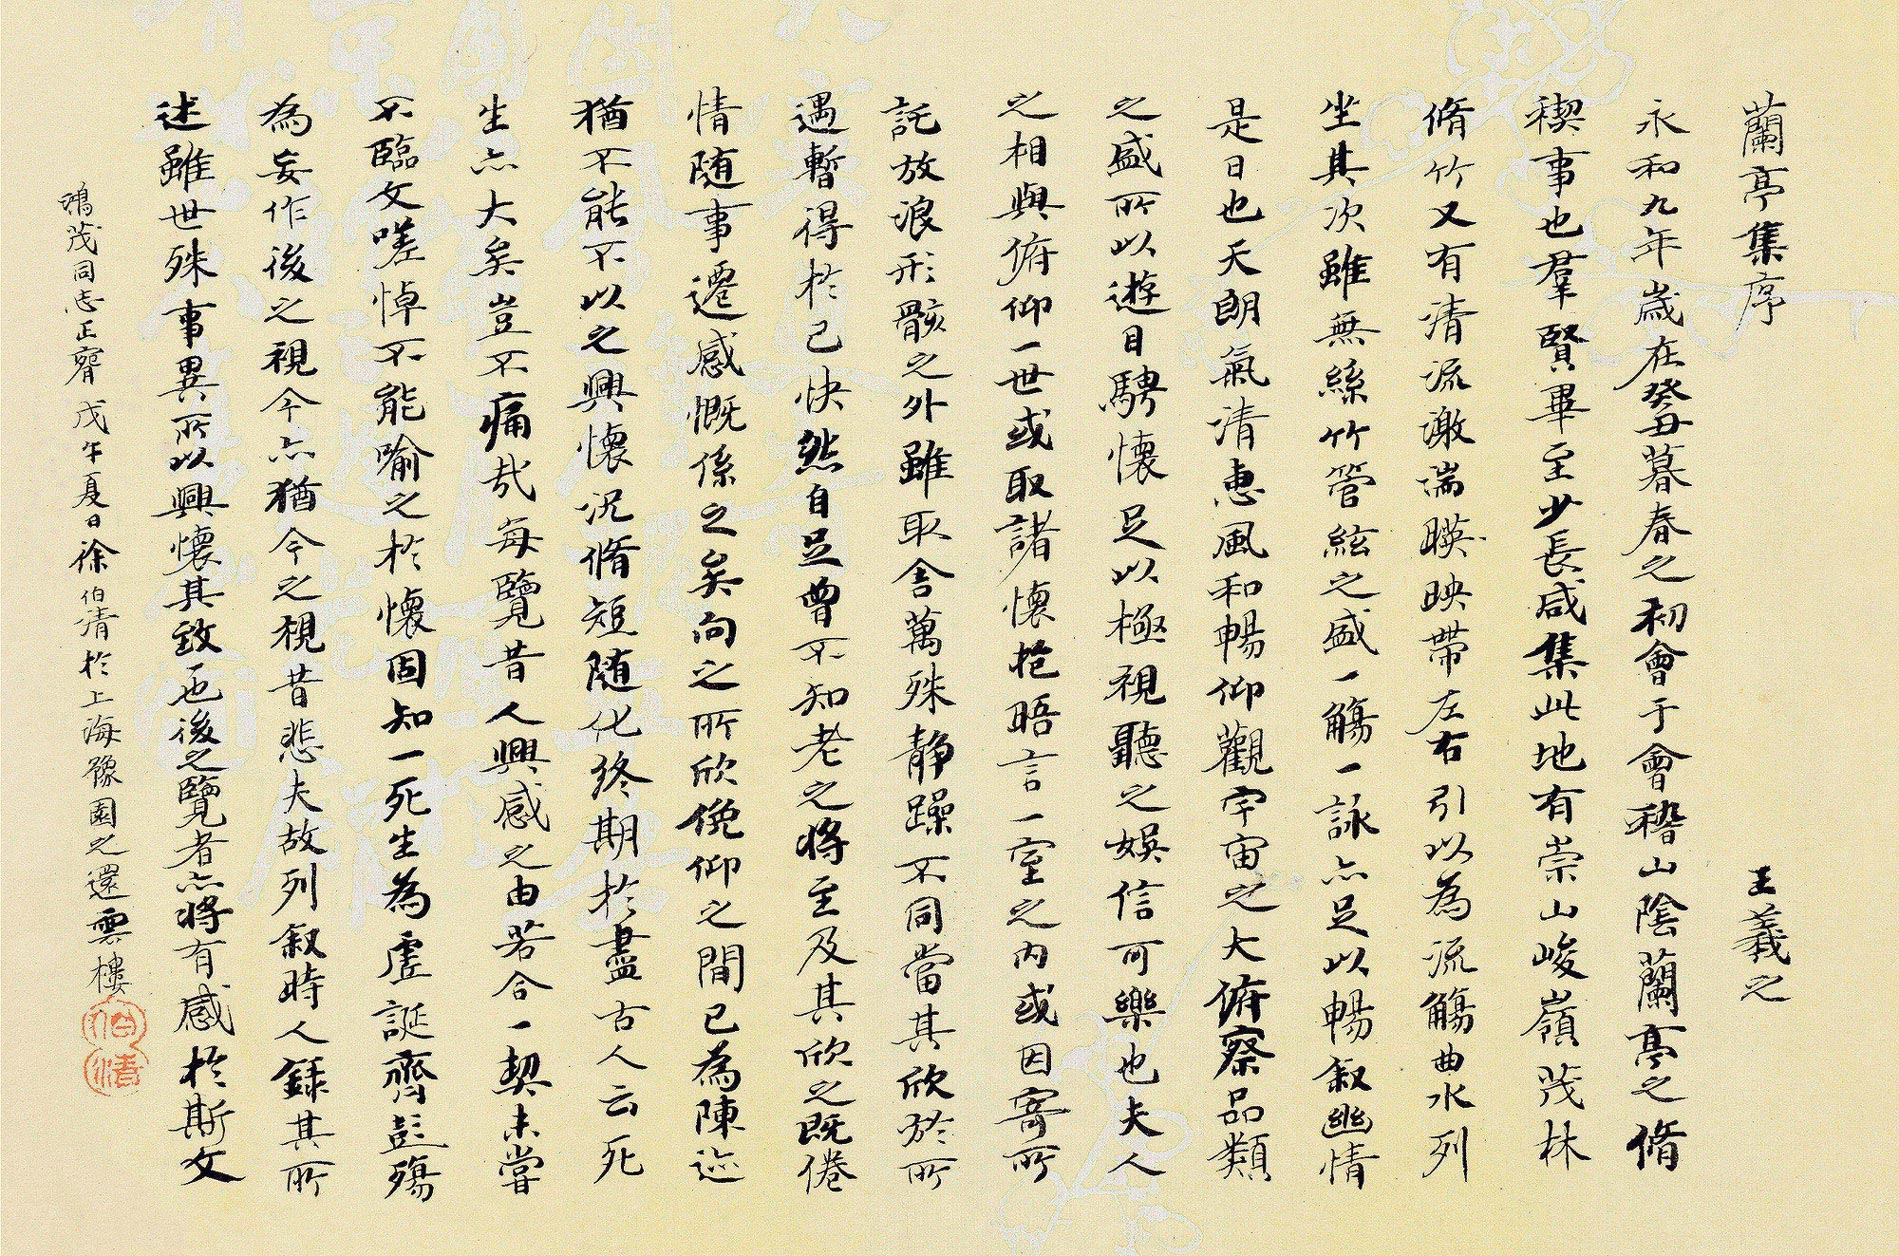 蘭亭集序 王羲之
永和九年歲在癸丑暮春之初會于會稽山陰蘭亭之脩
禊事也羣賢畢至少長咸集此地有崇山峻嶺茂林
脩竹又有清流激湍暎映帶左右引以為流觴曲水列
坐其次雖無絲竹管絃之盛一觴一詠亦足以暢叙幽情
是日也天朗氣清惠風和暢仰觀宇宙之大俯察品類
之盛所以遊目騁懷足以極視聽之娛信可樂也夫人
之相與俯仰一世或取諸懷抱晤言一室之內或因寄所
託放浪形骸之外雖取舍萬殊静躁不同當其欣於所
遇暫得於己快然自足曾不知老之將至及其欣之既倦
情随事遷感慨係之矣向之所欣俛仰之間已為陳迹
猶不能不以之興懷況脩短随化終期於盡古人云死
生亦大矣豈不痛哉每覽昔人興感之由若合一契未嘗
不臨文嗟悼不能喻之於懷固知一死生為虛誕齊彭殤
為妄作後之視今亦猶今之視昔悲夫故列叙時人録其所
述雖世殊事異所以興懷其致也後之覽者亦將有感於斯文
鴻茂同志正臠 戊午夏日徐伯清於上海豫園之還雲樓
伯清